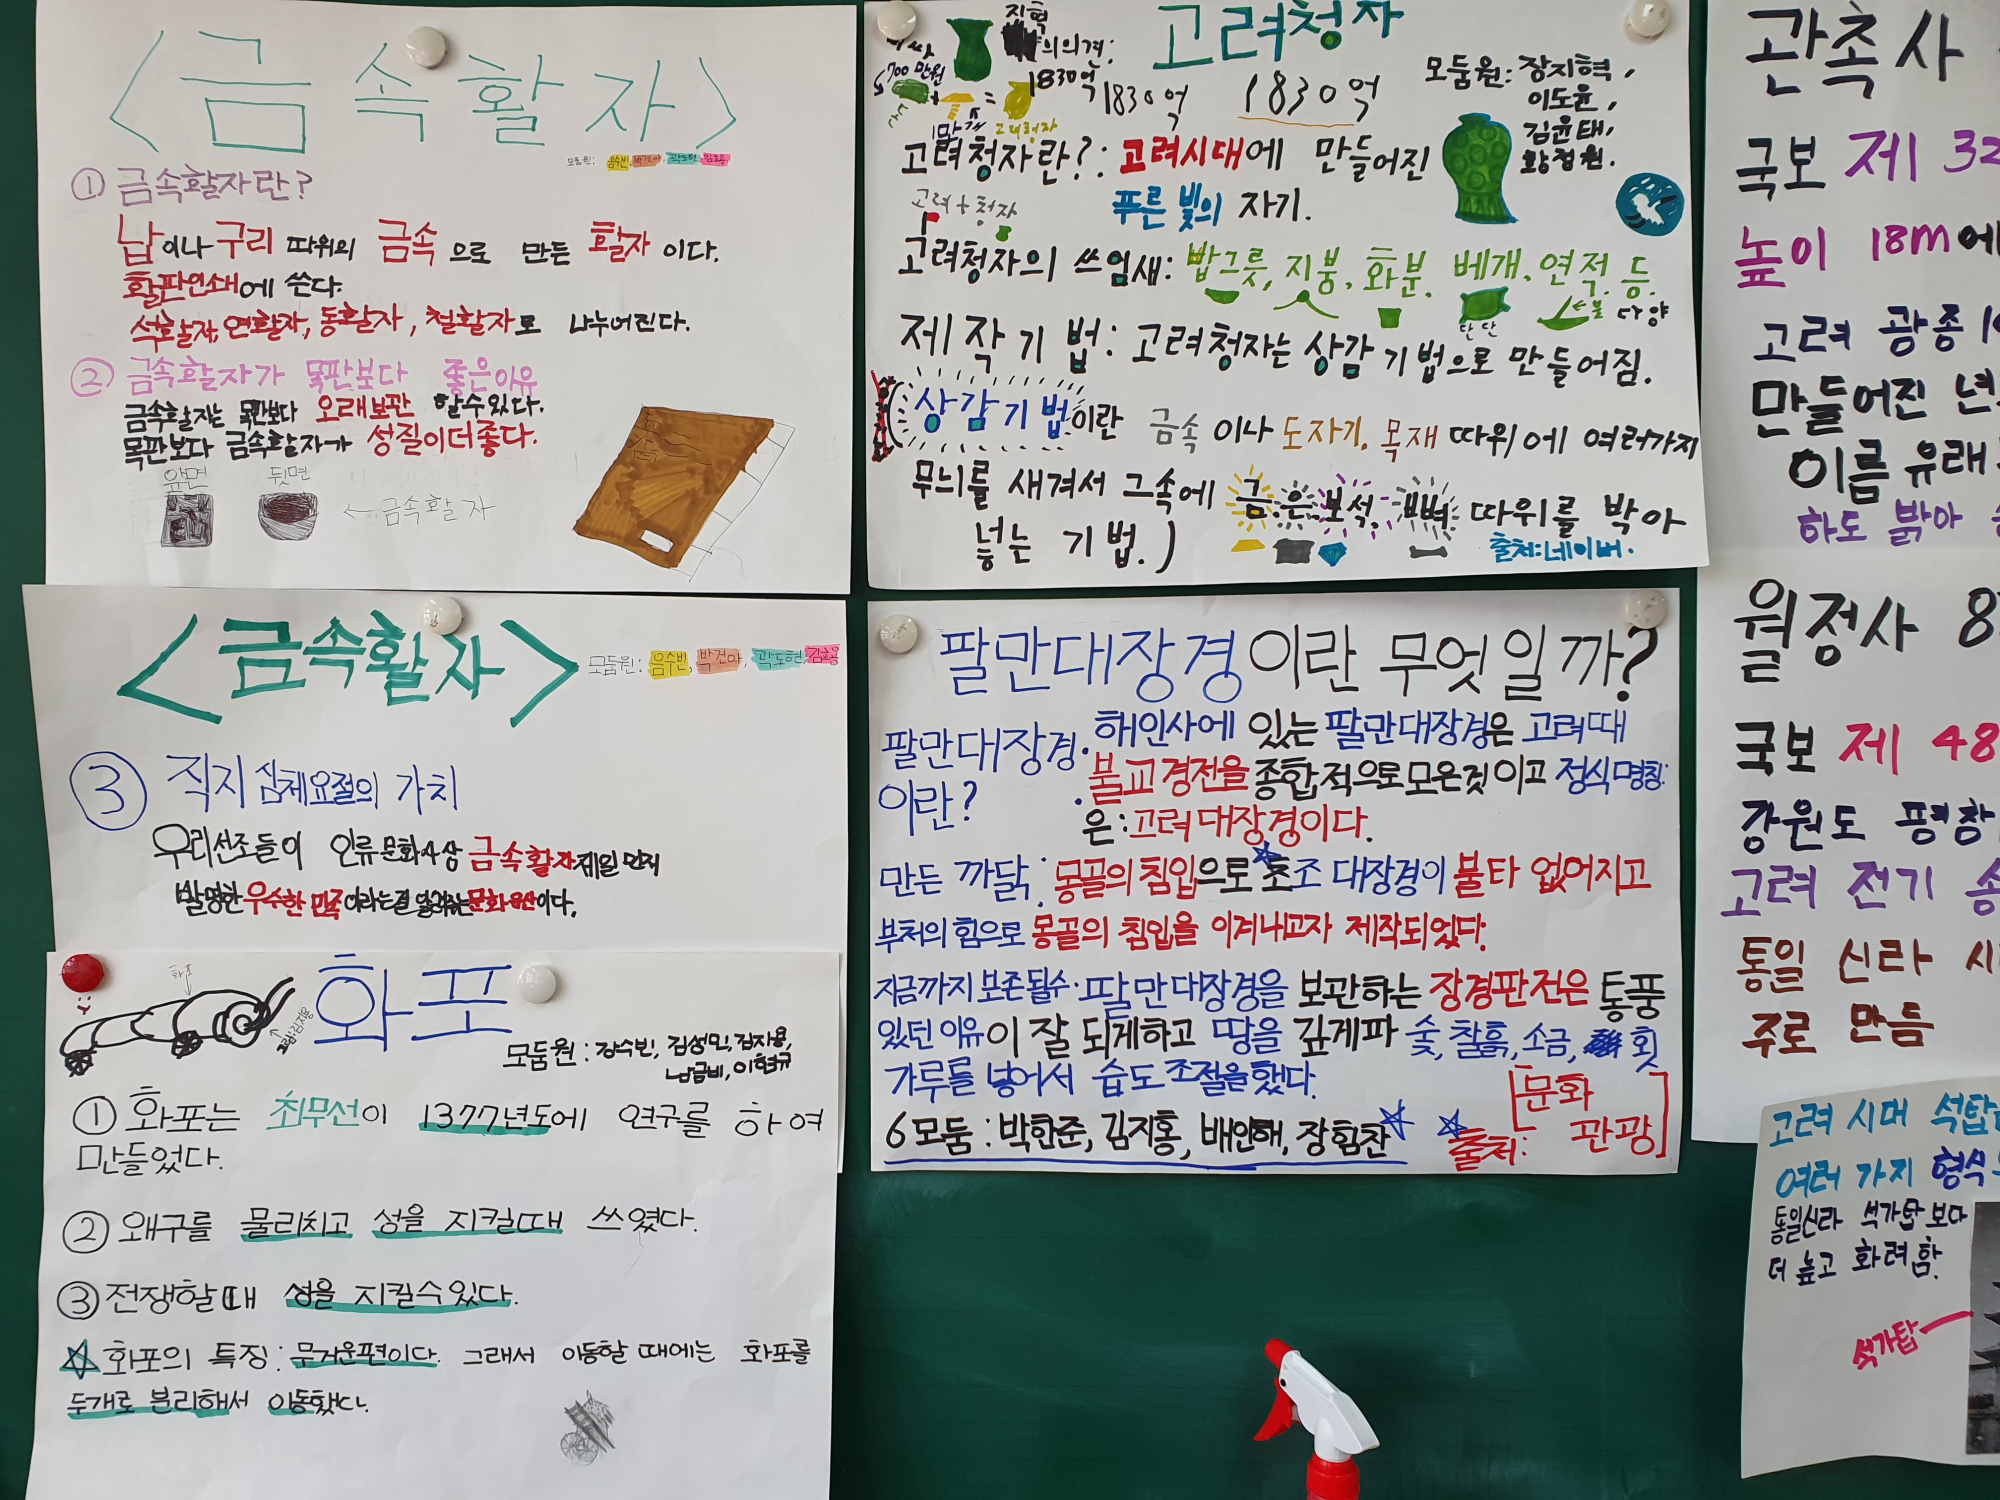 <금속활자>
모둠원: 음수빈, 박건아, 곽도현, 김홍용
① 금속활자란?
납이나 구리 따위의 금속으로 만든 활자이다.
활판인쇄에 쓴다.
석활자, 연활자, 동활자, 철활자로 나누어진다.
② 금속활자가 목판보다 좋은이유
금속활자는 목판보다 오래보관 할수있다.
목판보다 금속활자가 성질이더좋다.
앞면 뒷면
← 금속활자
<금속활자>
모둠원: 음수빈, 박건아, 곽도현, 김홍용
③ 직지심체요절의 가치
우리선조들이 인류문화사상 금속활자제일 먼저
발명한 우수한 민족이라는걸 알려주는문화유산이다.
화포
화포
모둠원: 강수빈, 김성민, 김지용,
남금비, 이혁규
① 화포는 최무선이 1377년도에 연구를 하여
만들었다.
② 왜구를 물리치고 성을 지킬때 쓰였다.
③ 전쟁할때 성을 지킬수있다.
☆화포의 특징: 무거운편이다. 그래서 이동할 때에는 화포를
두개로 분리해서 이동했다.
고려청자
지혁
의의견:
700만원
1830억
1830억
1830억
1만개
고려청자
모둠원: 장지혁,
이도윤,
김윤태,
황정원.
고려청자란?: 고려시대에 만들어진
푸른 빛의 자기.
고려+청자
고려청자의 쓰임새: 밥그릇, 지붕, 화분, 베개, 연적, 등.
단단
←물
다양
제작기법: 고려청자는 상감기법으로 만들어짐.
(상감기법이란 금속이나 도자기, 목재 따위에 여러가지
무늬를 새겨서 그속에 금·은·보석, 뼈 따위를 박아
넣는 기법.)
출처:네이버.
팔만대장경이란 무엇일까?
팔만대장경이란?
·해인사에 있는 팔만대장경은 고려때
·불교경전을 종합적으로모은것이고 정식명칭:
은:고려대장경이다.
만든 까닭: 몽골의침입으로 초조 대장경이 불타 없어지고
부처의힘으로 몽골의 침입을 이겨내고자 제작되었다.
지금까지 보존될수 있던 이유
·팔만대장경을 보관하는 장경판전은 통풍
이 잘 되게하고 땅을 깊게파 숯, 찰흙, 소금, 횟
가루를 넣어서 습도조절을했다.
6모둠: 박한준, 김지홍, 배인해, 장힘찬
출처: [문화
관광]
관촉사
국보 제 32
높이 18m에
고려 광종
만들어진 년
이름유래
하도 밝아
월정사 8
국보 제 48
강원도 평창
고려 전기
통일 신라 시
주로 만듬
고려 시대 석탑
여러 가지 형식
통일신라 석가탑 보다
더 높고 화려함.
석가탑